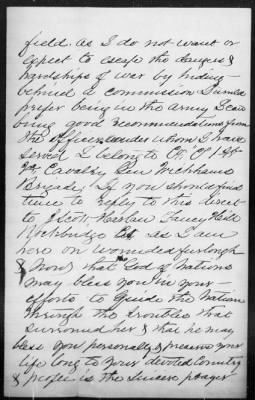 field. as I do not want or
expect to escape the dangers &
hardships of war by hiding
behind a commission I would
prefer being in the army I can
bring good recommendations from
the officers under whom I have
served I belong to Co. "C" 1st
Va Cavalry Gen Wickhams
Brigade, If you should find
time to reply to this direct
to J Scott Harlan Fancy Hill
Rockbridge as I am
here on wounded furlough
& Now that God of Nations
may bless you in your
efforts to guide the Nation
through the troubles that
surround her & that he may
bless you personally & preserve your
life long to your devoted Country
& people is the sincere prayer